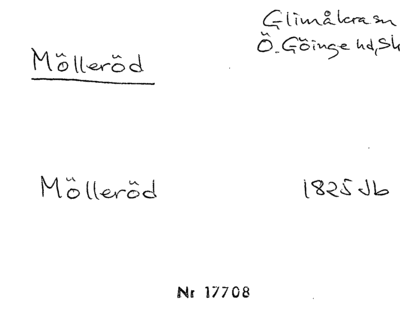 Glimåkra sn
Mölleröd
Ö. Göinge hd, Sk
Mölleröd 1825 Jb
Nr 17708